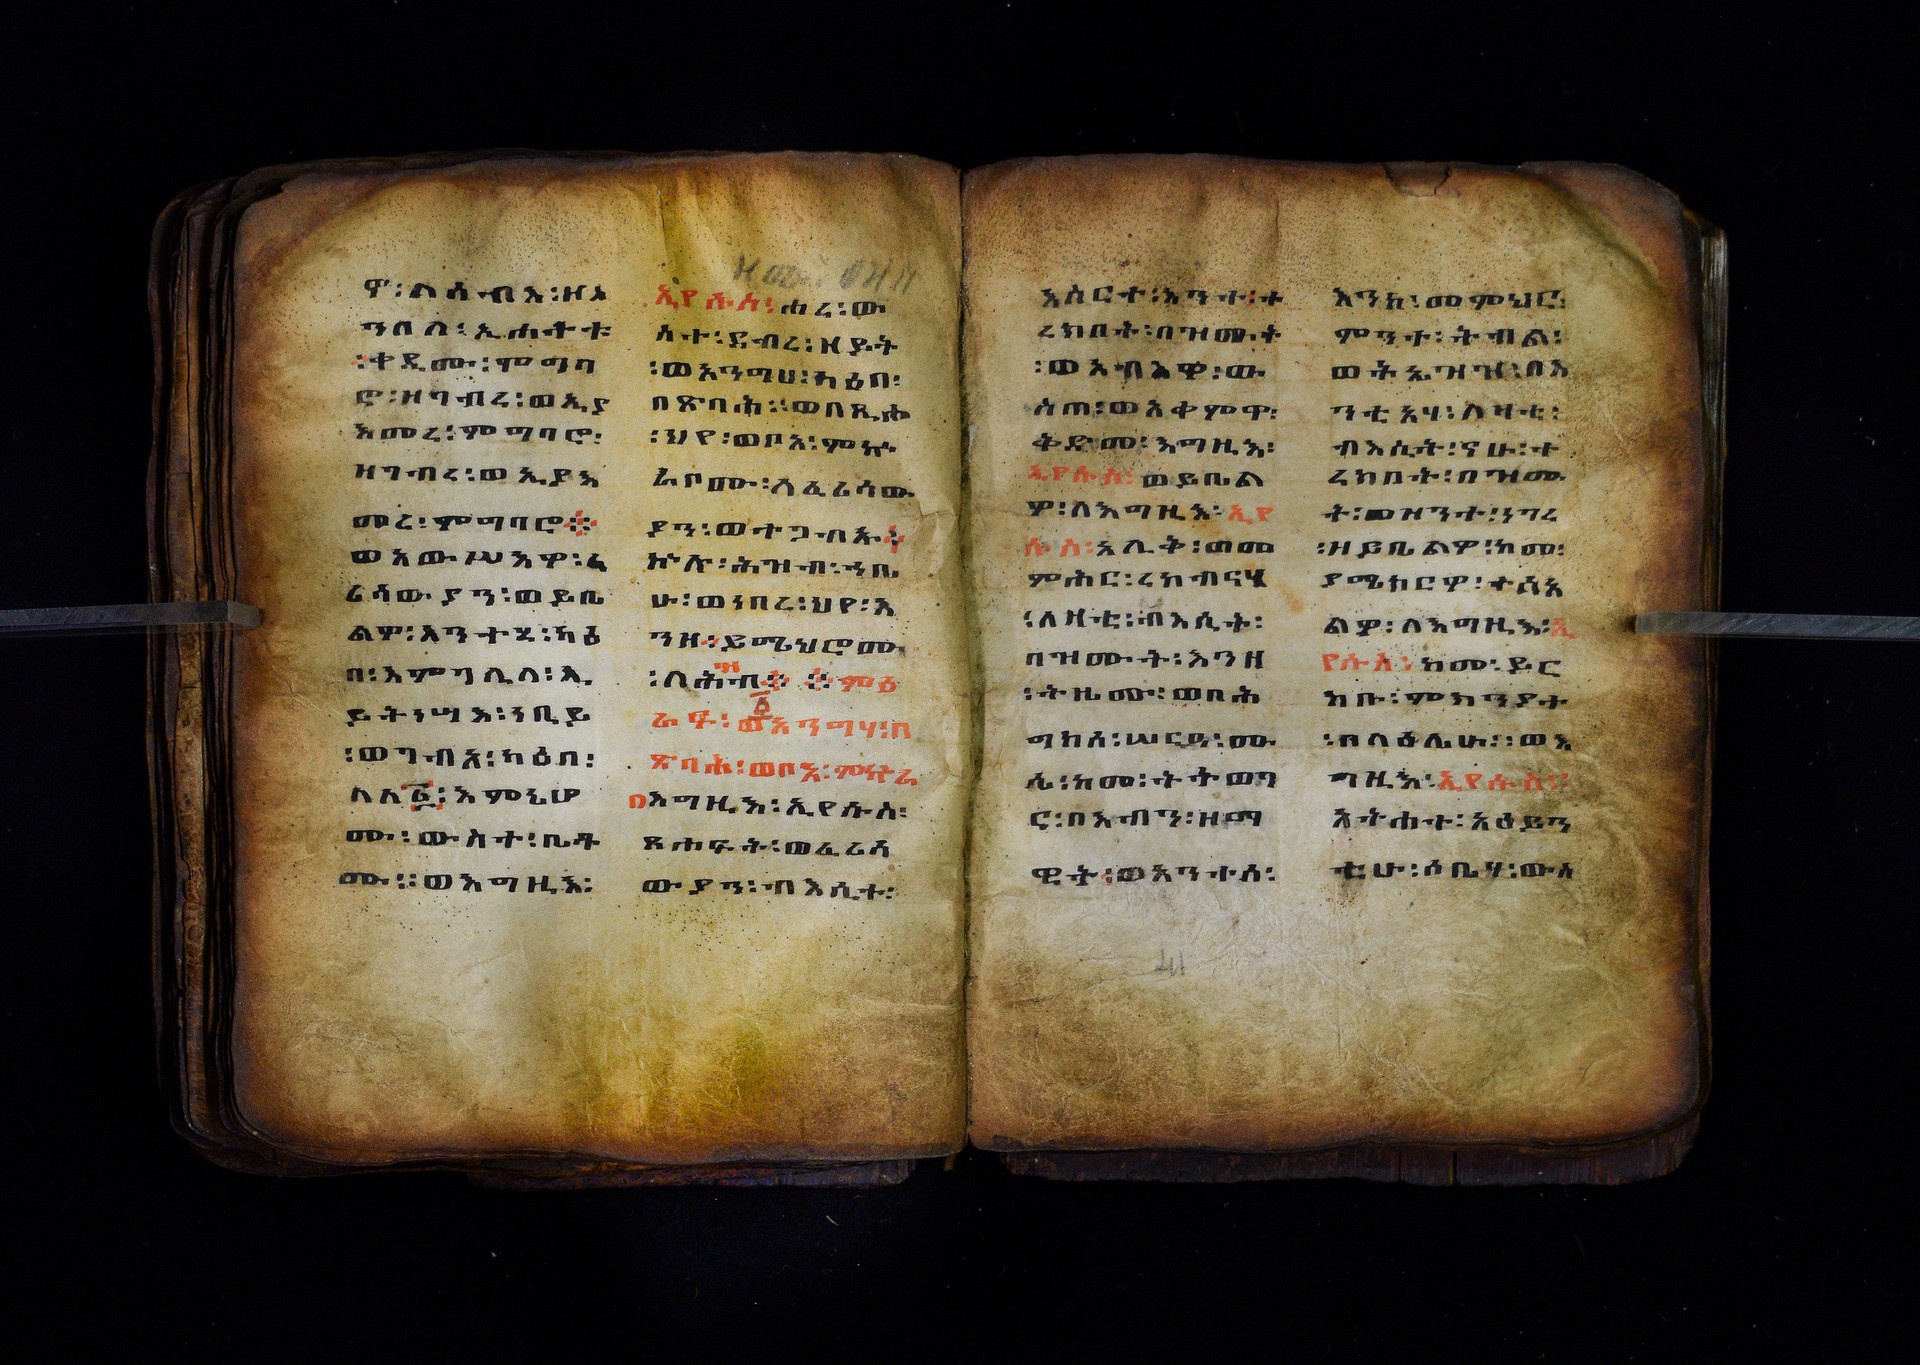 ዋ፡ለሰብእ፡ዘእ
ንበለ፡ኢሐተቱ
፡ቀዲሙ፡ምግባ
ሮ፡ዘገብረ፡ወኢያ
እመረ፡ምግባሮ፡
ዘገብረ፡ወኢያእ
መረ፡ምግባሮ፨
ወአውሥእዋ፡ፈ
ሪሳውያን፡ወይቤ
ልዎ፡አንተሂ፡ካዕ
በ፡እምገሊላ፡ኢ
ይትነሣእ፡ነቢይ
፡ወግብአ፡ካዕበ፡
ለለ፩፡እምኔሆ
ሙ፡ውስተ፡ቤቶ
ሙ፡፡ወእግዚእ፡
ኢየሱስ፡ሐረ፡ው
ስተ፡ደብረ፡ዘይት
፡ወአንግሀ፡ካዕበ፡
በጽባሕ፡፡ወበጺሖ
፡ህየ፡ወቦአ፡ምኵ
ራቦሙ፡ለፈሪሳው
ያን፡ወተጋብኡ፡
ኵሉ፡ሕዝብ፡ኀቤ
ሁ፡ወነበረ፡ህየ፡እ
ንዘ፡ይሜህሮሙ
፡ለሕዝብ፨ ፨ምዕ
ራፍ፡፰ወአንግሃ፡በ
ጽባሕ፡ወቦአ፡ምኵራ
በእግዚእ፡ኢየሱስ፡
ጸሐፍት፡ወፈሪሳ
ውያን፡ብእሲተ፡
እስርተ፡እንተ፡ተ
ረክበት፡በዝሙት
፡ወአብእዋ፡ው
ስጠ፡ወአቀምዋ፡
ቅድመ፡እግዚእ፡
ኢየሱስ፡ወይቤል
ዎ፡ለእግዚእ፡ኢየ
ሱስ፡አሊቅ፡ወመ
ምሕር፡ረከብናሃ
፡ለዛቲ፡ብእሲት፡
በዝሙት፡እንዘ
፡ትዜሙ፡ወበሕ
ግከሰ፡ሠርዐ፡ሙ
ሴ፡ከመ፡ትትወገ
ር፡በእብን፡ዘማ
ዊት፡ወአንተሰ፡
እንከ፡መምህር፡
ምንተ፡ትብል፡
ወትኤዝዝ፡በእ
ንቲአሃ፡ለዛቲ፡
ብእሲት፡ናሁ፡ተ
ረክበት፡በዝሙ
ት፡ወዝንተ፡ነገረ
፡ዘይቤልዎ፡ከመ፡
ያሜክርዎ፡ተስእ
ልዎ፡ለእግዚእ፡ኢ
የሱስ፡ከመ፡ይር
ከቡ፡ምክንያተ
፡በላዕሌሁ፡፡ወእ
ግዚእ፡ኢየሱስ፡፡
አትሐተ፡አዕይን
ቲሁ፡ሶቤሃ፡ውስ